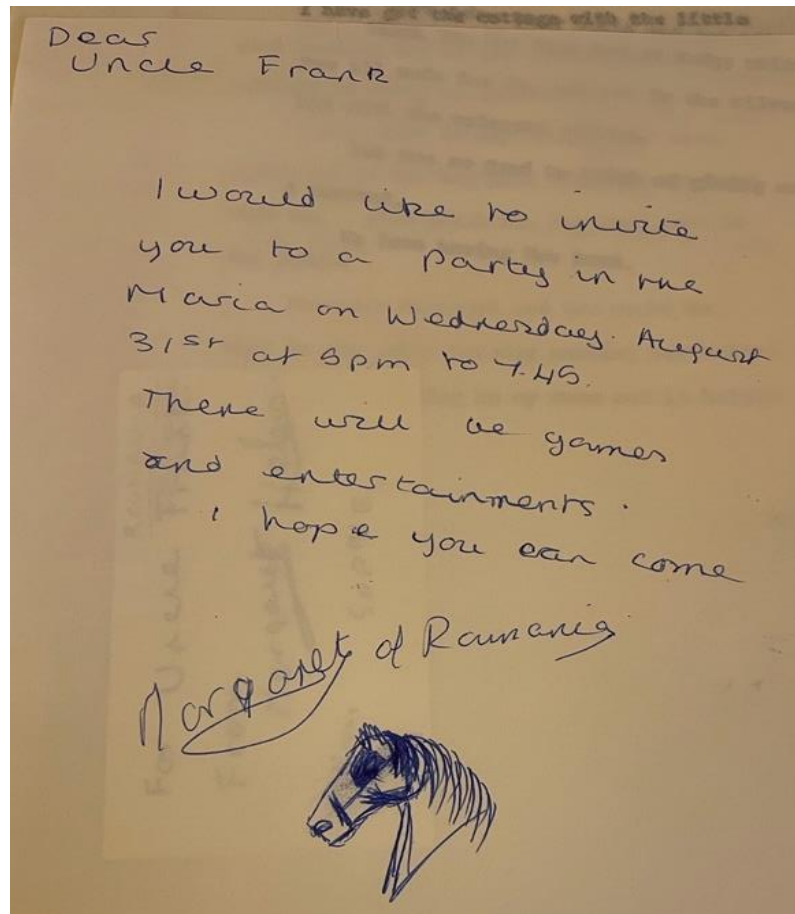 I have got the cottage with the little
Dear
Uncle Frank
I would like to invite
you to a party in the
Maria on Wednesday. August
31st at 5pm to 7.45.
There will be games
and entertainments.
I hope you can come
Margaret of Roumania